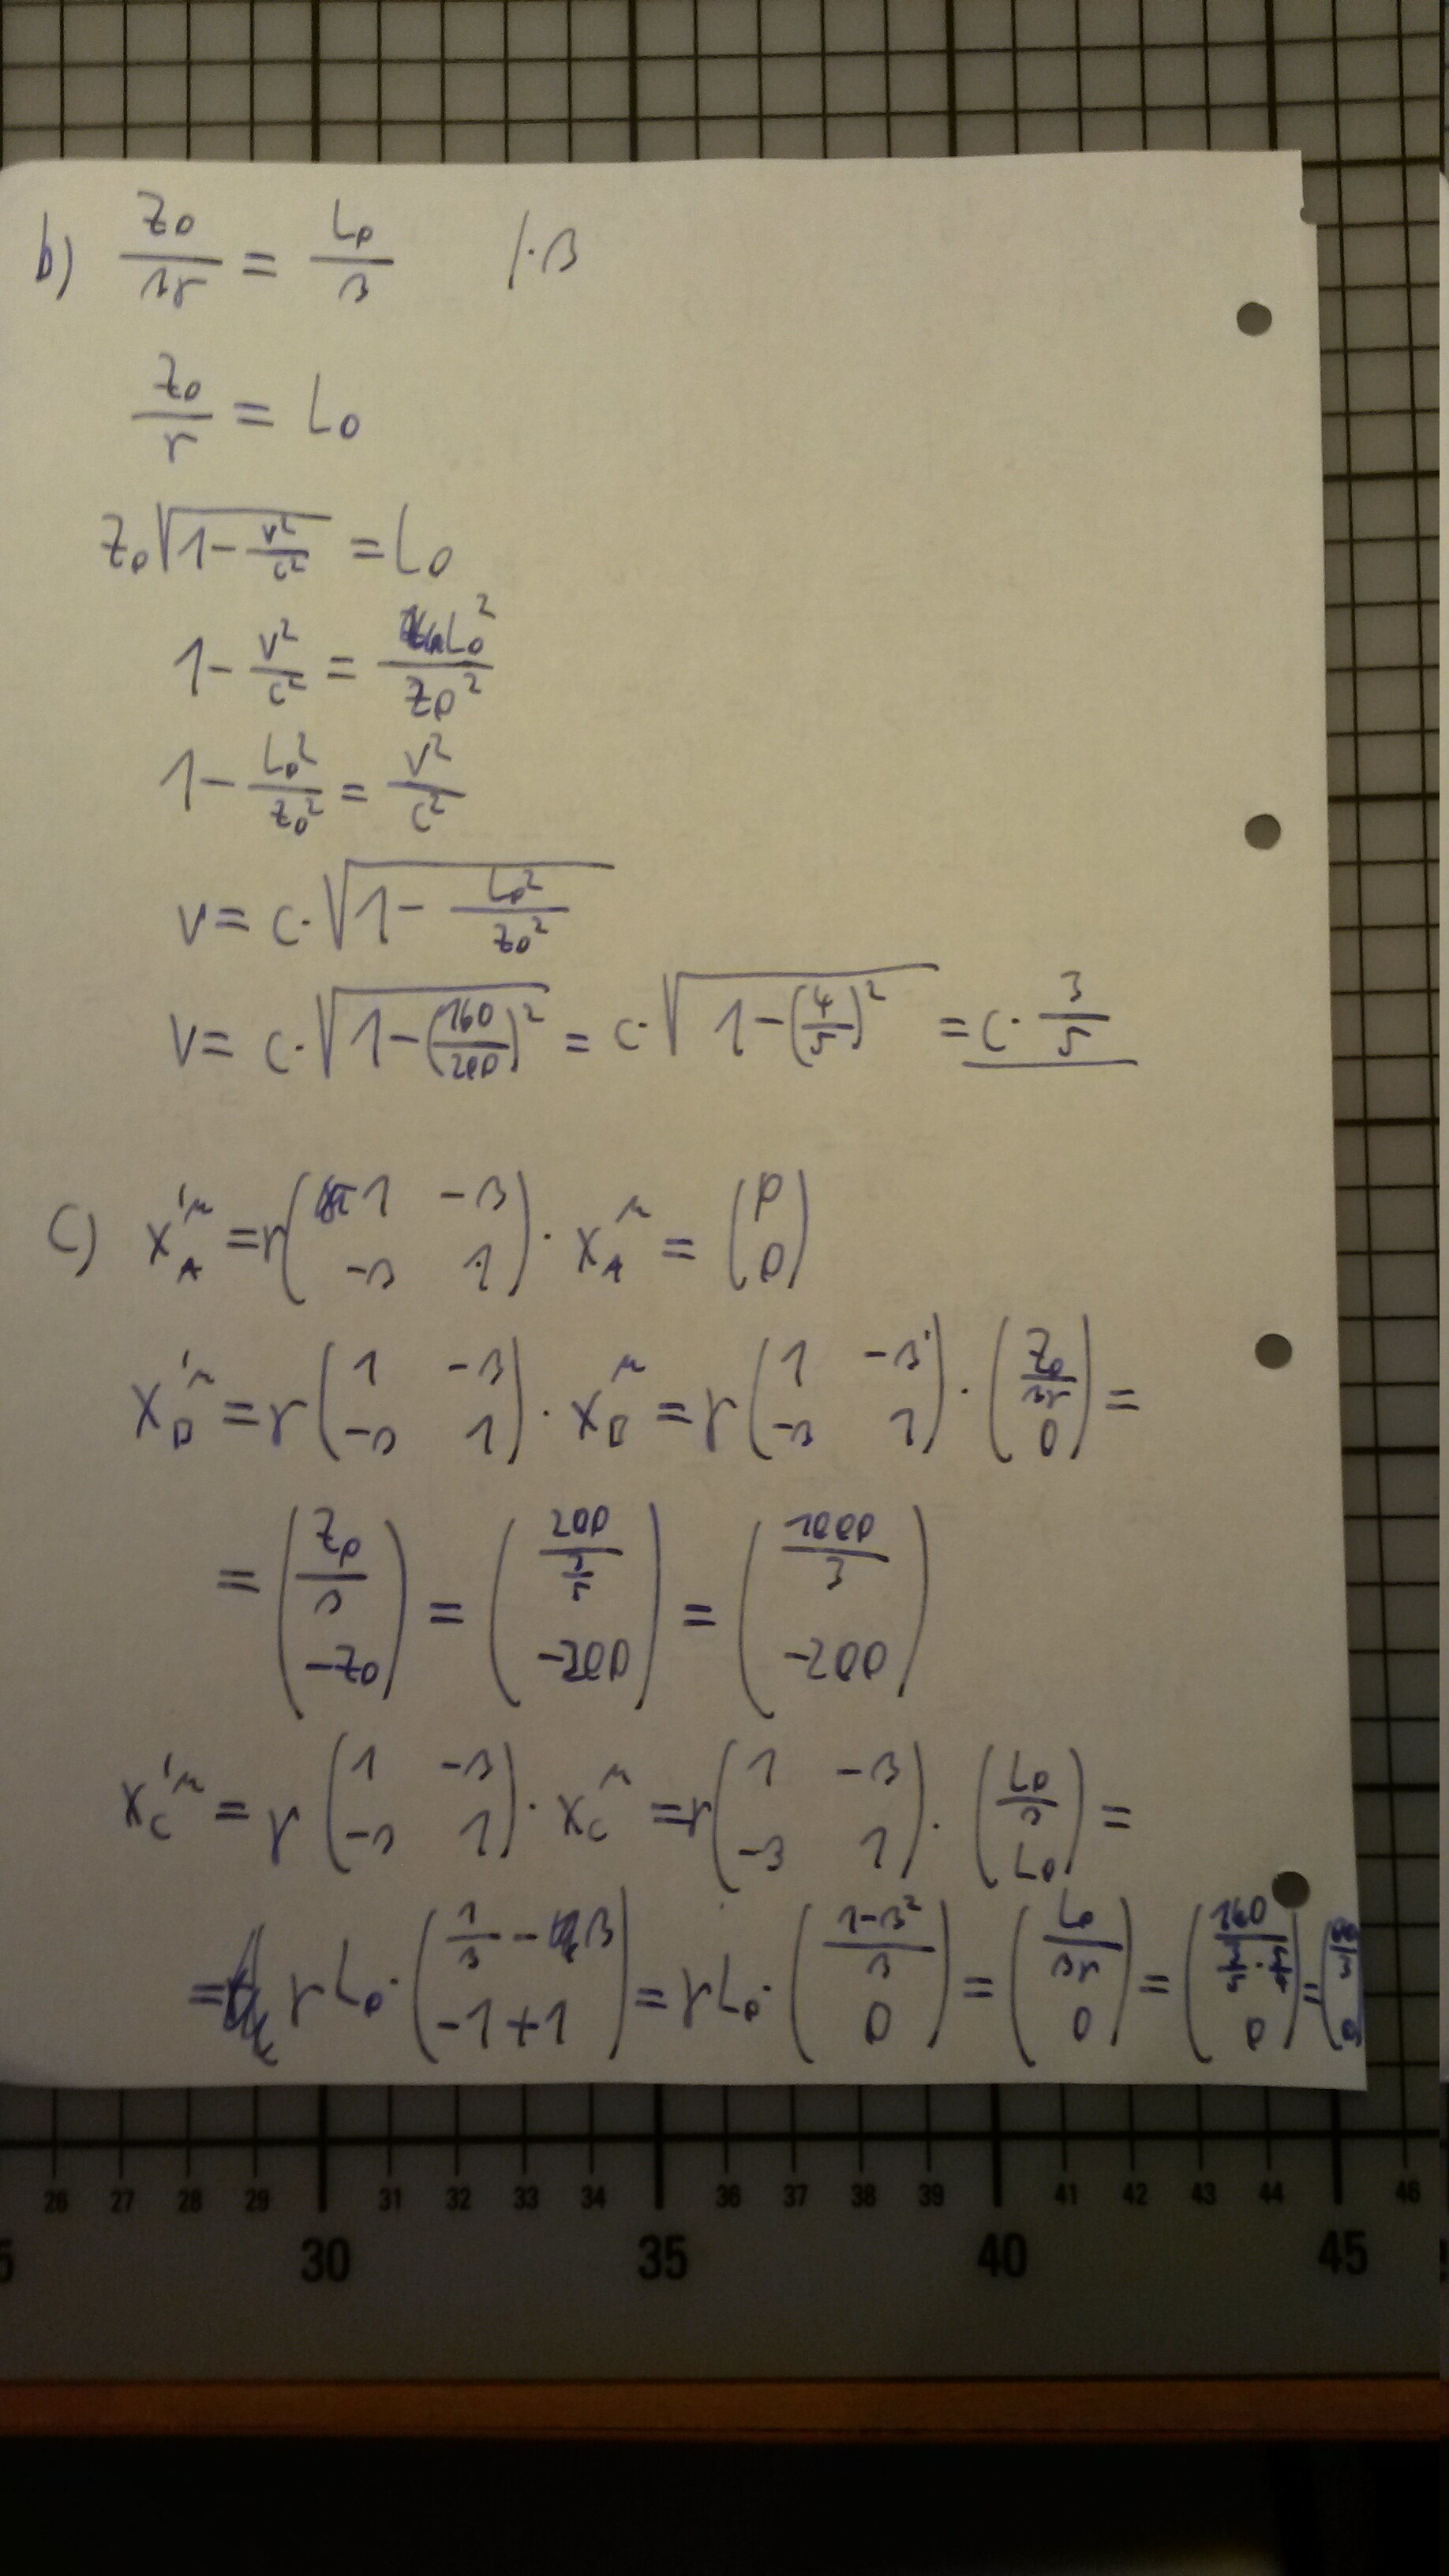 b) Z₀/(βγ) = L₀/β |·β
Z₀/γ = L₀
Z₀ √(1 − v²/c²) = L₀
1 − v²/c² = L₀²/Z₀²
1 − L₀²/Z₀² = v²/c²
v = c · √(1 − L₀²/Z₀²)
v = c · √(1 − (160/200)²) = c · √(1 − (4/5)²) = c · 3/5
c) x'_A^μ = γ (1 −β; −β 1) · x_A^μ = (0; 0)
x'_B^μ = γ (1 −β; −β 1) · x_B^μ = γ (1 −β; −β 1) · (Z₀/(βγ); 0) =
= (Z₀/β; −Z₀) = (200/(3/5); −200) = (1000/3; −200)
x'_C^μ = γ (1 −β; −β 1) · x_C^μ = γ (1 −β; −β 1) · (L₀/β; L₀) =
= γ L₀ · (1/β − β; −1 + 1) = γ L₀ · ((1 − β²)/β; 0) = (L₀/(βγ); 0) = (160/(3/5 · 5/4); 0) =
26 27 28 29 31 32 33 34 36 37 38 39 41 42 43 44 46
5 30 35 40 45